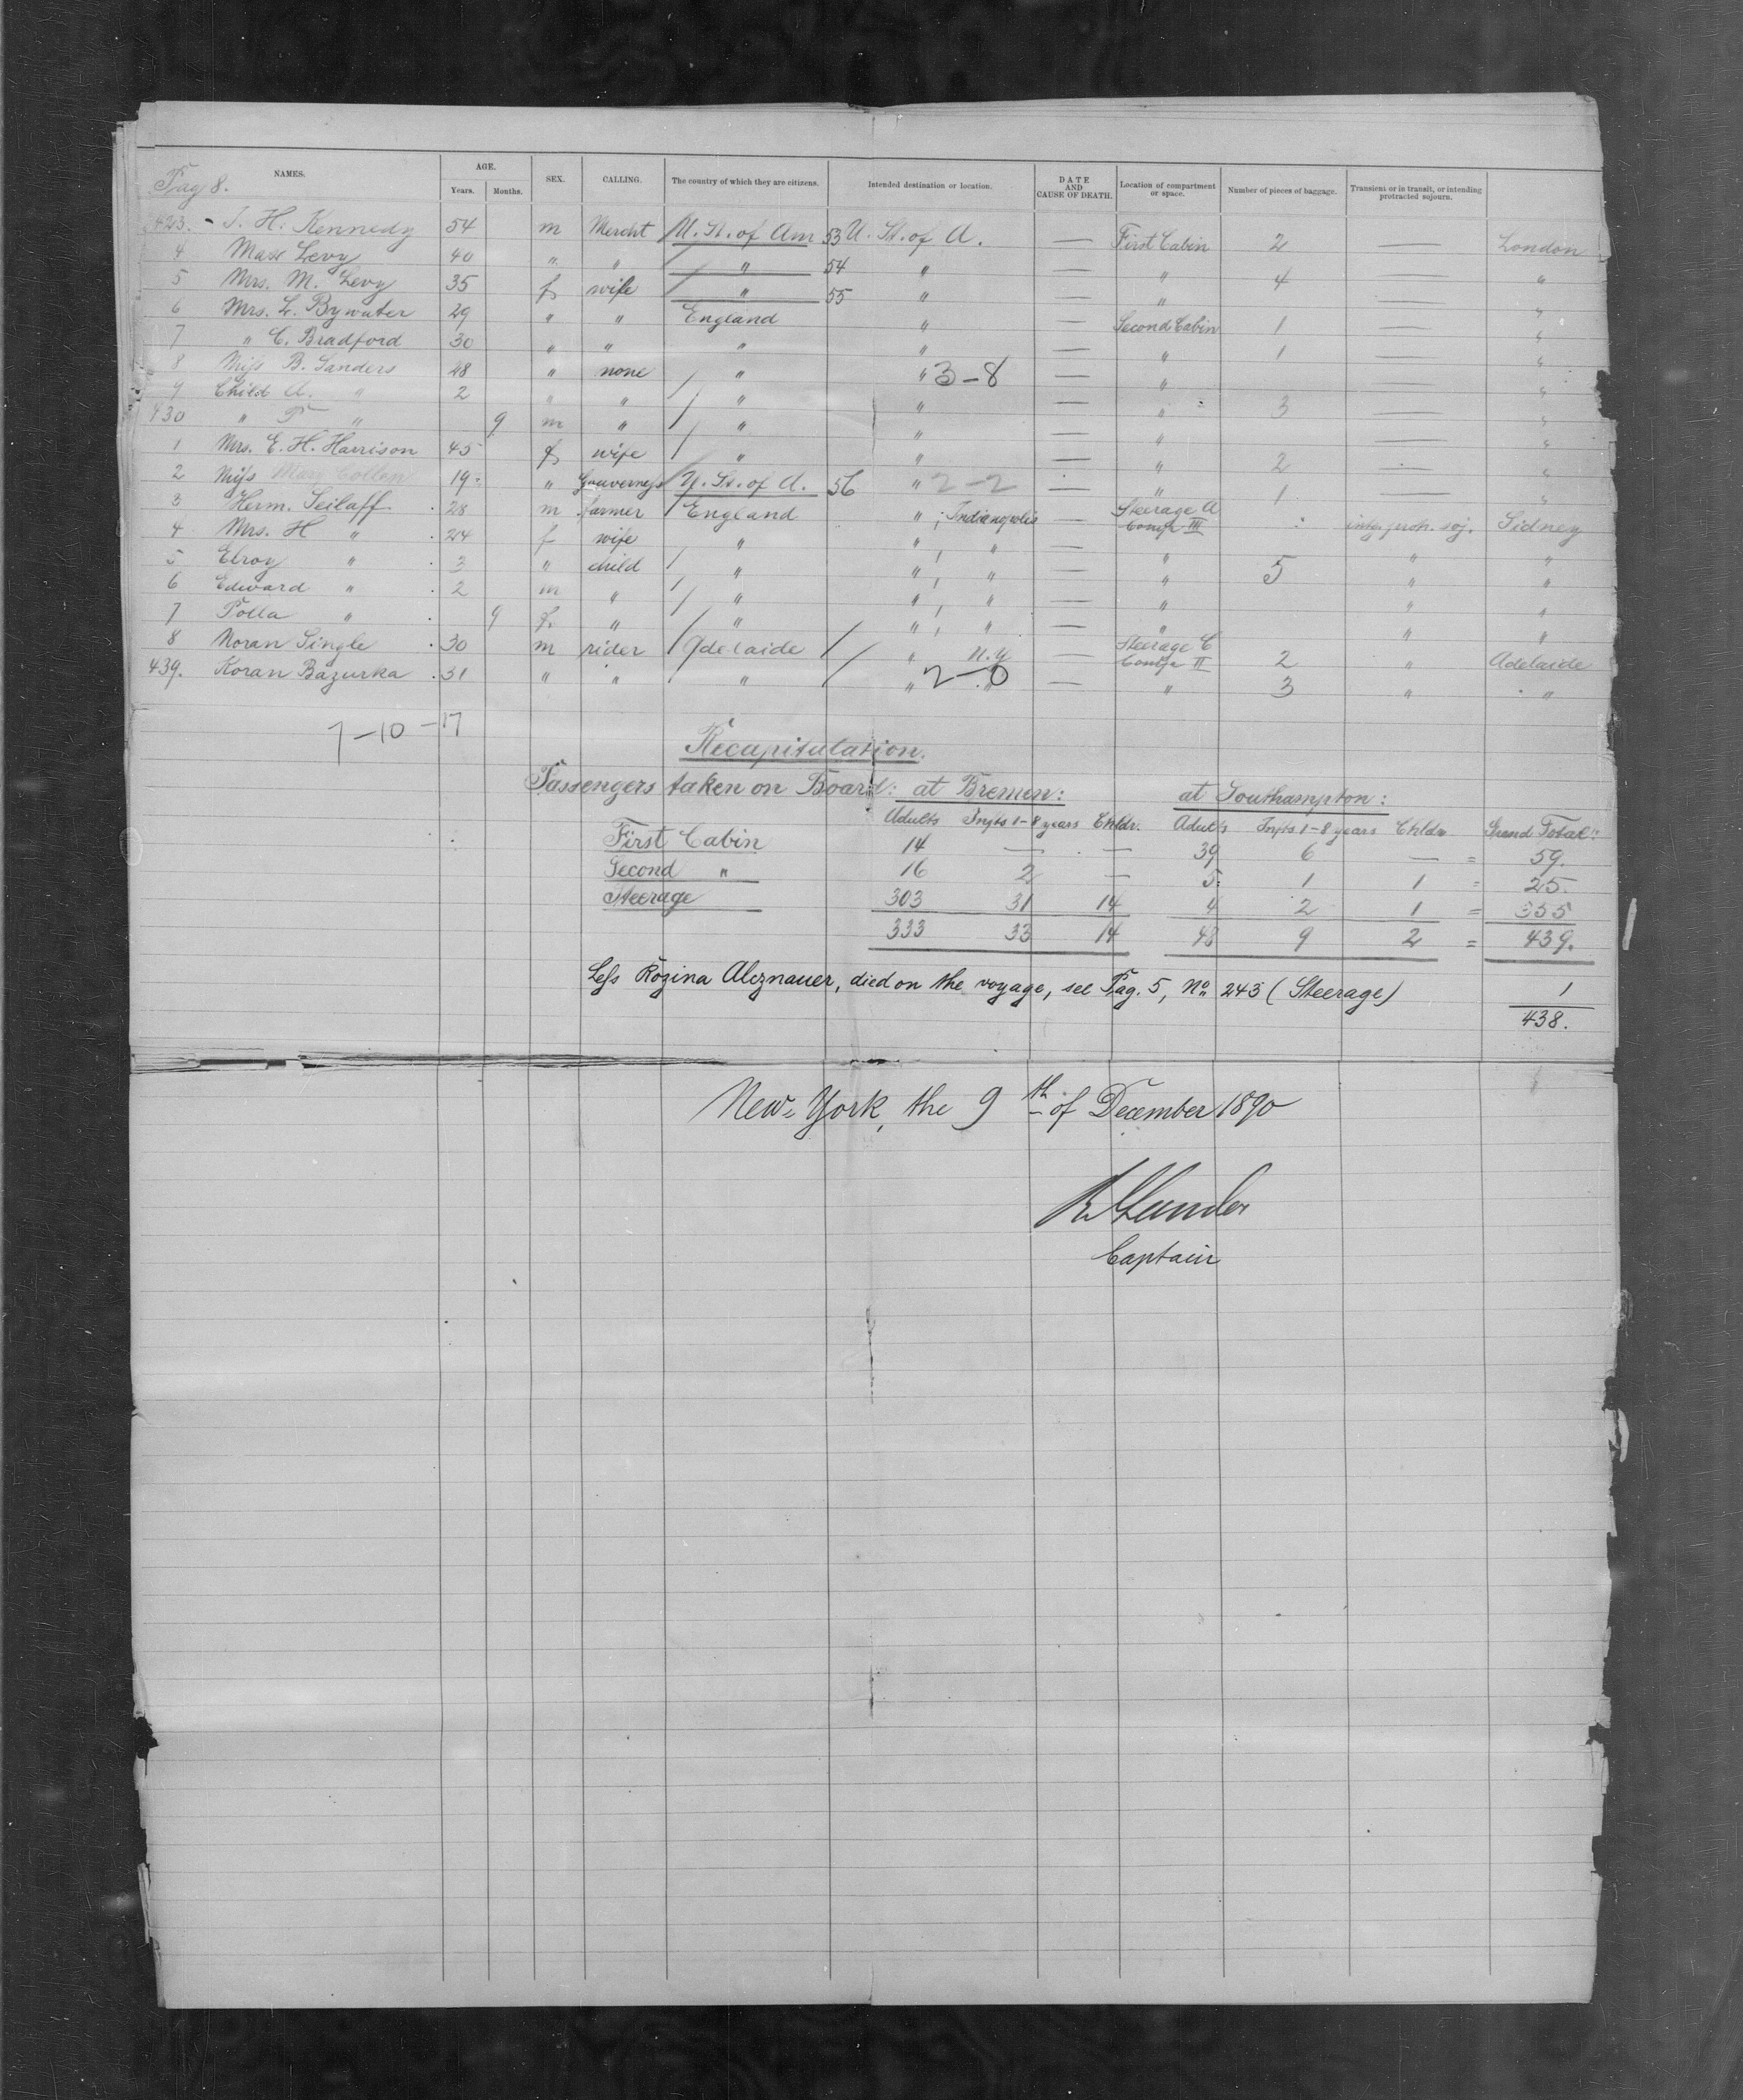 NAMES. AGE. Years. Months. SEX. CALLING. The country of which they are citizens. Intended destination or location. DATE AND CAUSE OF DEATH. Location of compartment or space. Number of pieces of baggage. Transient or in transit, or intending protracted sojourn.
Pag 8.
423. - J. H. Kennedy 54 m Mercht U. St. of Am 53 U. St. of A. — First Cabin 2 — London
4 Max Levy 40 " " " 54 " — " 4 — "
5 Mrs. M. Levy 35 f wife " 55 " — " — "
6 Mrs. L. Bywater 29 " " England " — Second Cabin 1 — "
7 " C. Bradford 30 " " " " — " 1 — "
8 Miss B. Sanders 28 " none " " 3-8 — " "
9 Child A. " 2 " " " " — " 3 — "
430 " P " 9 m " " " — " — "
1 Mrs. E. H. Harrison 45 f wife " " — " 2 — "
2 Miss Mary Collen 19 " Gouverness U. St. of A. 56 " 2-2 — " 1 — "
3 Herm. Seilaff 28 m farmer England " ; Indianopolis — Steerage A Comp III Sidney
4 Mrs. H " 24 f wife " " , " — " " "
5 Elroy " 3 " child " " , " — " 5 " "
6 Edward " 2 m " " " , " — " " "
7 Polla " 9 f. " " " , " — " " "
8 Noran Single 30 m rider Adelaide " N.Y — Steerage C Comp II 2 " Adelaide
439. Koran Bazurka 31 " " " " 2-0 " — " 3 " "
7-10-17
Recapitulation.
Passengers taken on Board: at Bremen: at Southampton:
Adults Infts 1-8 years Chldr. Adults Infts 1-8 years Chldr Grand Total:
First Cabin 14 — — 39 6 — = 59.
Second " 16 2 — 5 1 1 = 25.
Steerage 303 31 14 4 2 1 = 355
333 33 14 48 9 2 = 439.
Less Rozina Alcznauer, died on the voyage, see Pag. 5, No 243 (Steerage) 1
438.
New-York, the 9th of December 1890
Captain